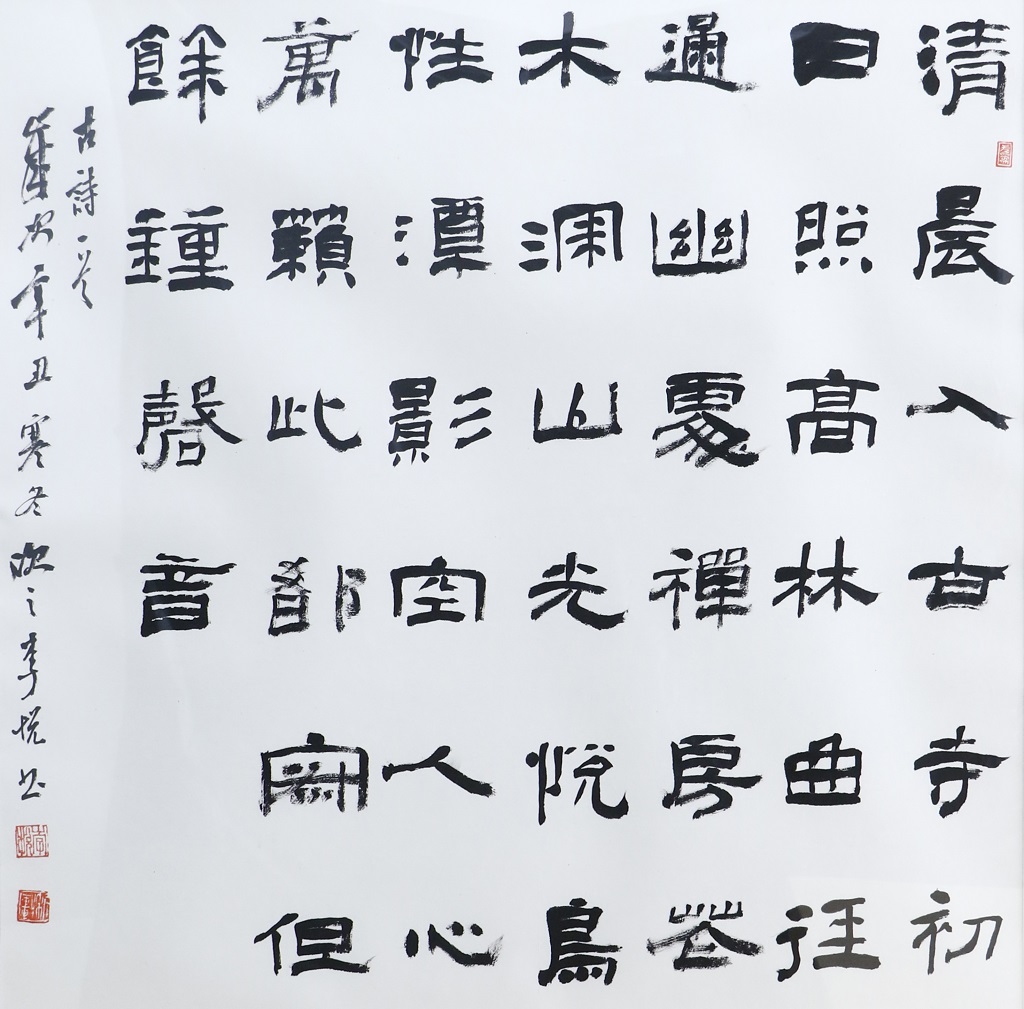 清晨入古寺初
日照高林曲徑
通幽處禪房花
木深山光悅鳥
性潭影空人心
萬籟此都寂但
餘鍾磬音
古詩一首
歲次辛丑寒冬之李悅书